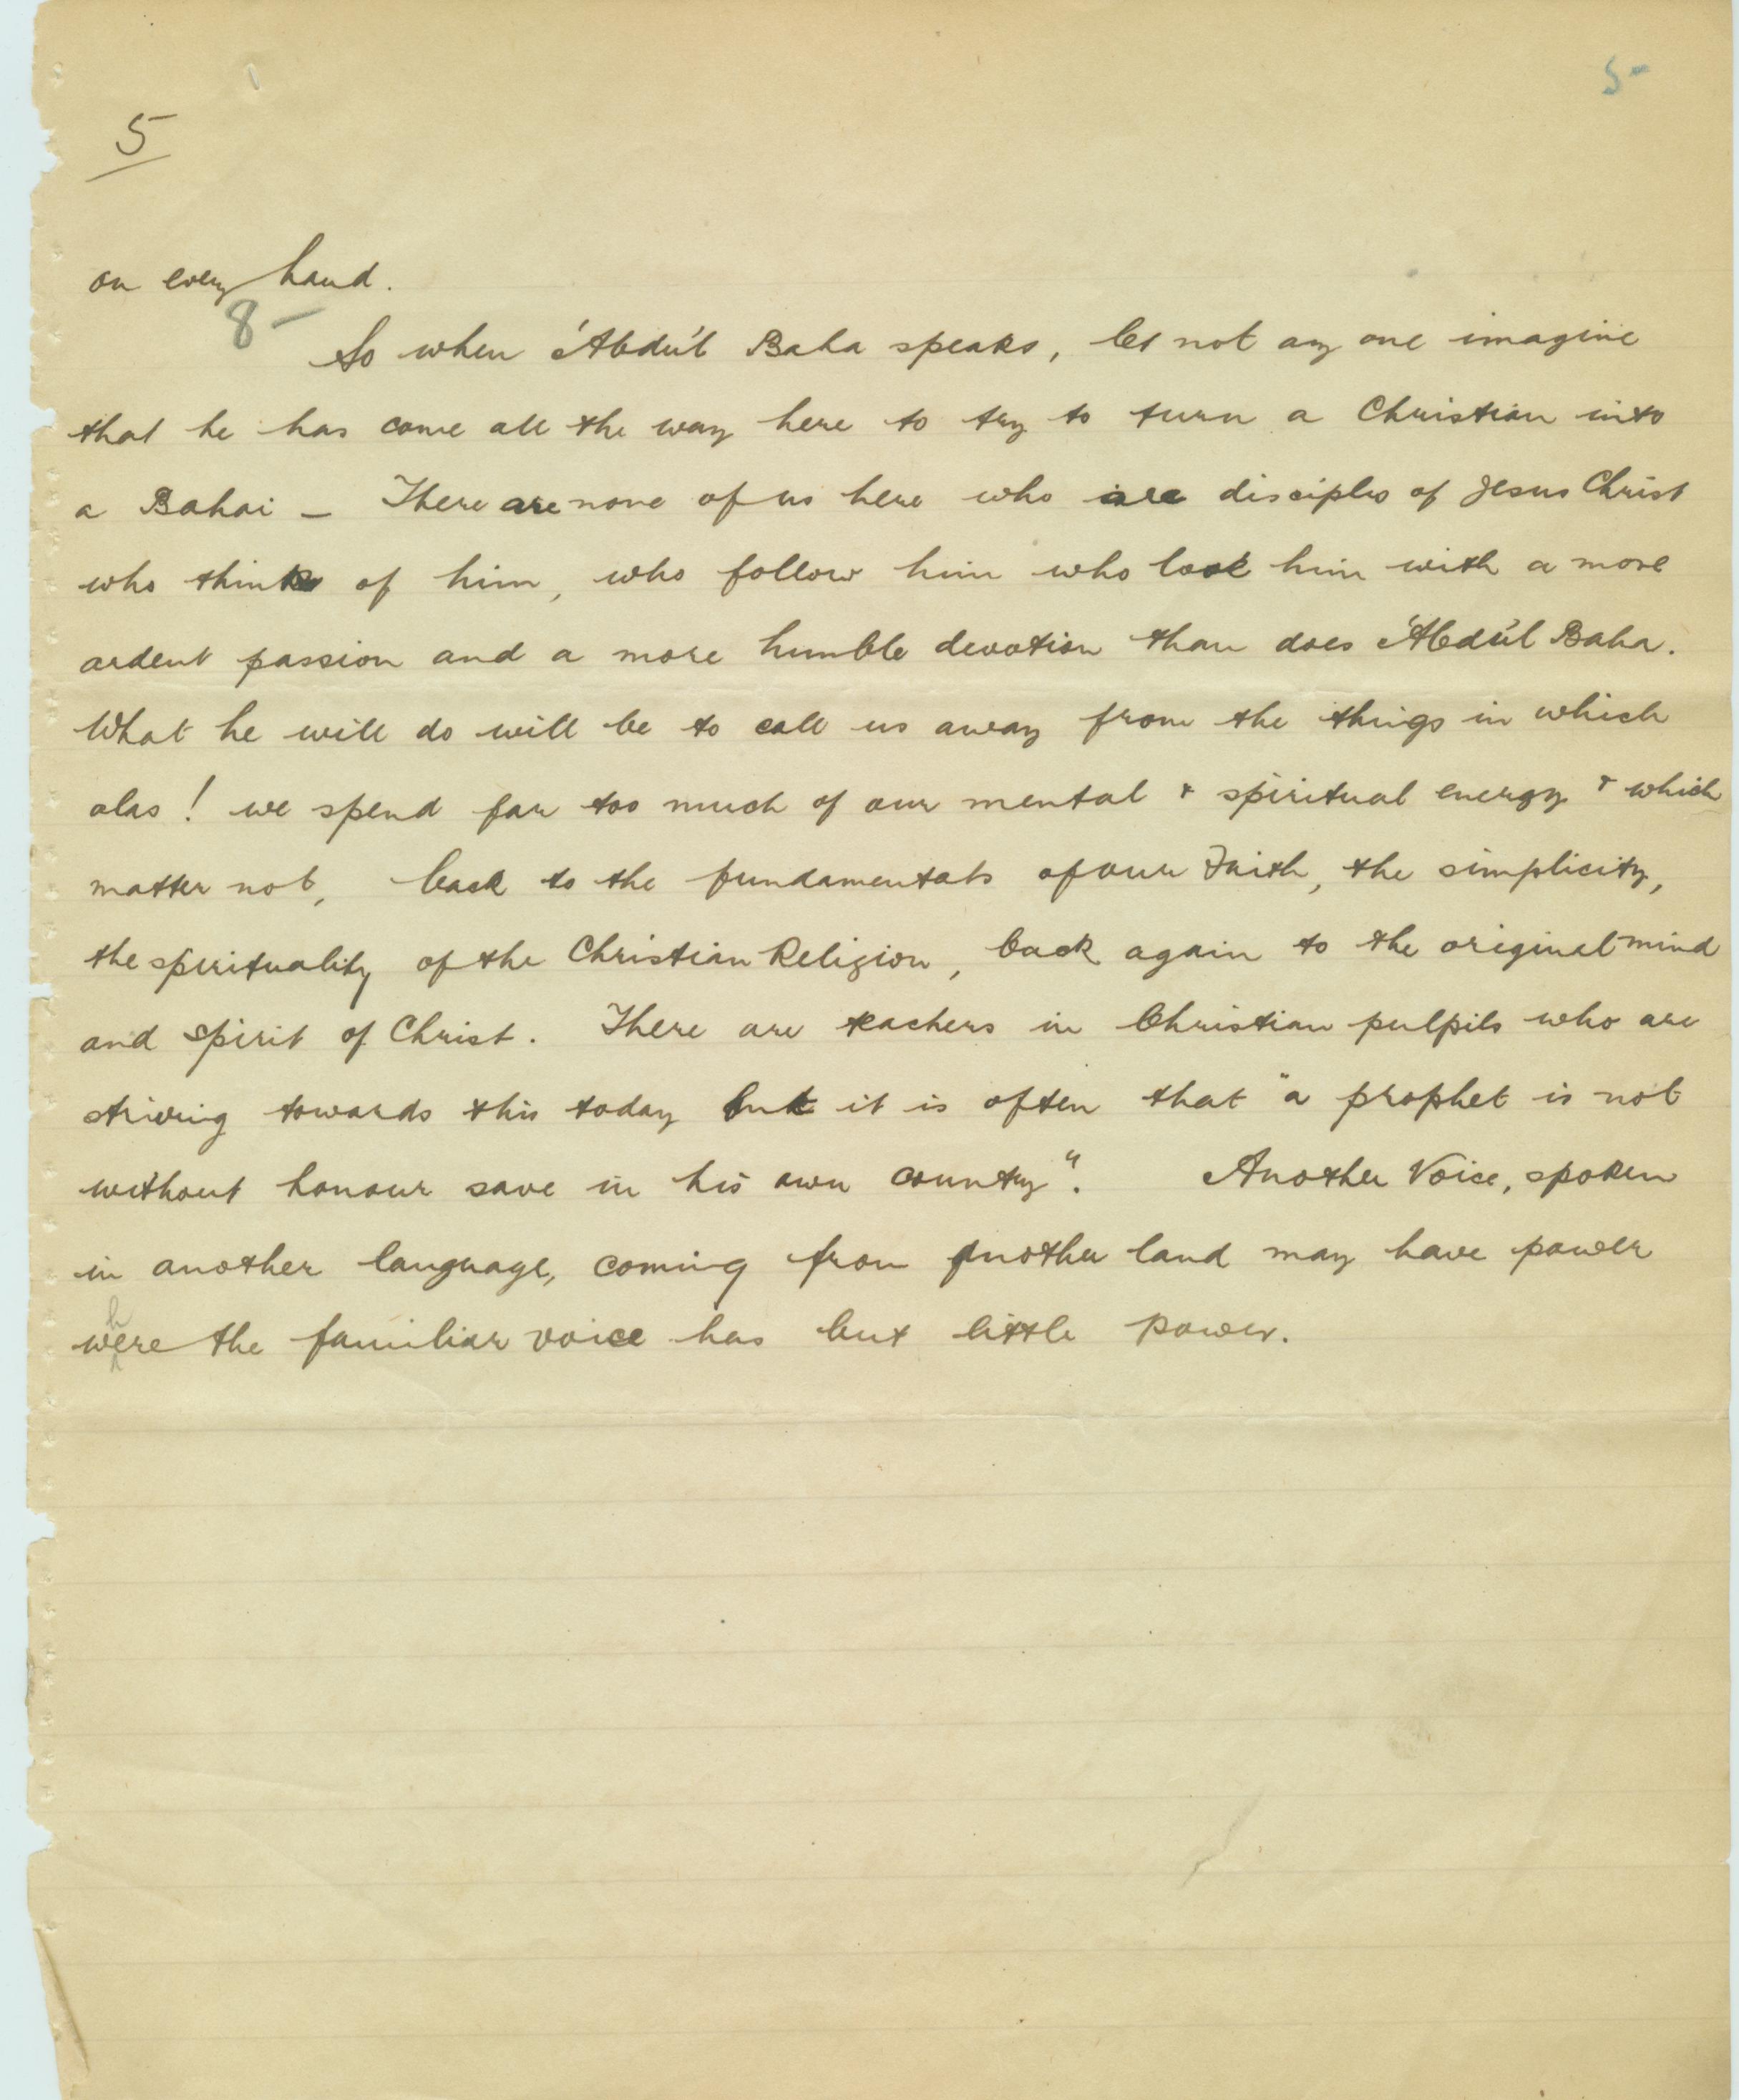 5-
5
on every hand.
8-
So when 'Abdu'l Baha speaks, let not any one imagine
that he has come all the way here to try to turn a Christian into
a Bahai — There are none of us here who are disciples of Jesus Christ
who think of him, who follow him who look him with a more
ardent passion and a more humble devotion than does 'Abdu'l Baha.
What he will do will be to call us away from the things in which
alas! we spend far too much of our mental & spiritual energy & which
matter not, back to the fundamentals of our Faith, the simplicity,
the spirituality of the Christian Religion, back again to the original mind
and spirit of Christ. There are teachers in Christian pulpits who are
striving towards this today but it is often that "a prophet is not
without honour save in his own country". Another Voice, spoken
in another language, coming from another land may have power
where the familiar voice has but little power.